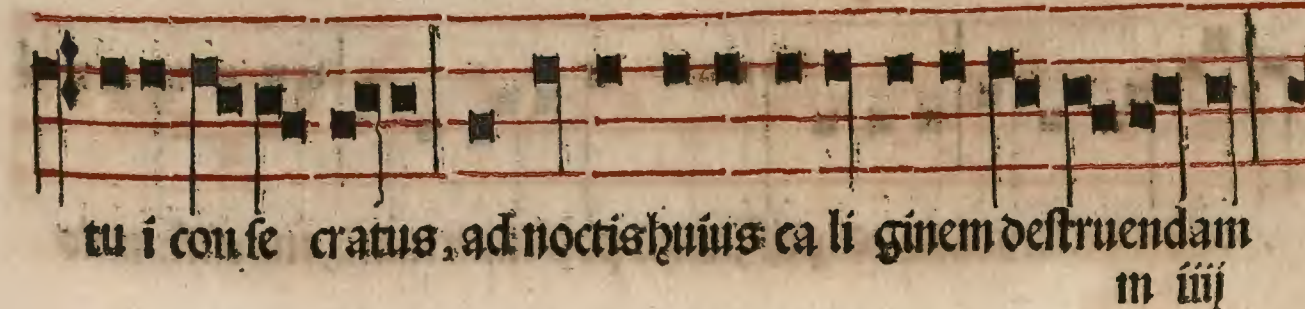 tu i con se cratus, ad noctis huius ca li ginem destruendam
m iiij